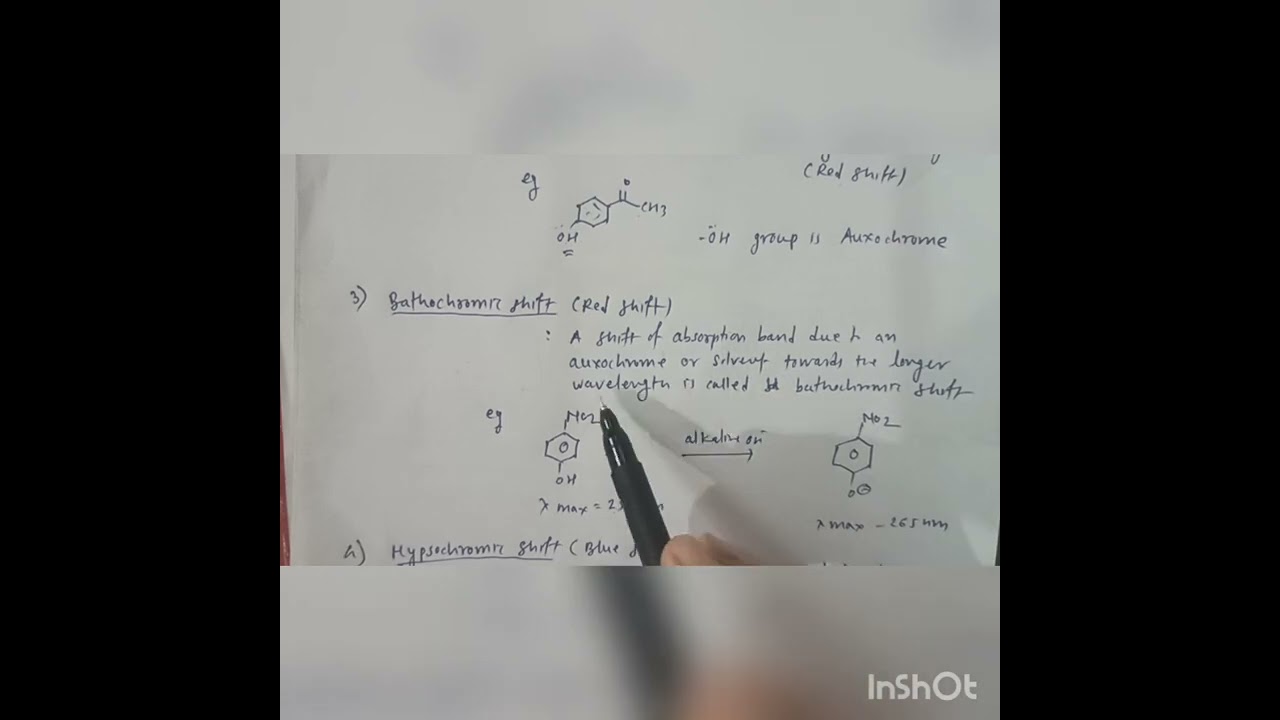 (Red shift)
eg
O
CH3
ÖH
-ÖH group is Auxochrome
3) Bathochromic shift (Red shift)
: A shift of absorption band due to an
auxochrome or solvent towards the longer
wavelength is called bathochromic shift
eg
NO2
OH
alkaline OH⁻
NO2
O⊖
λ max =
λ max - 265 nm
4) Hypsochromic shift (Blue
InShOt